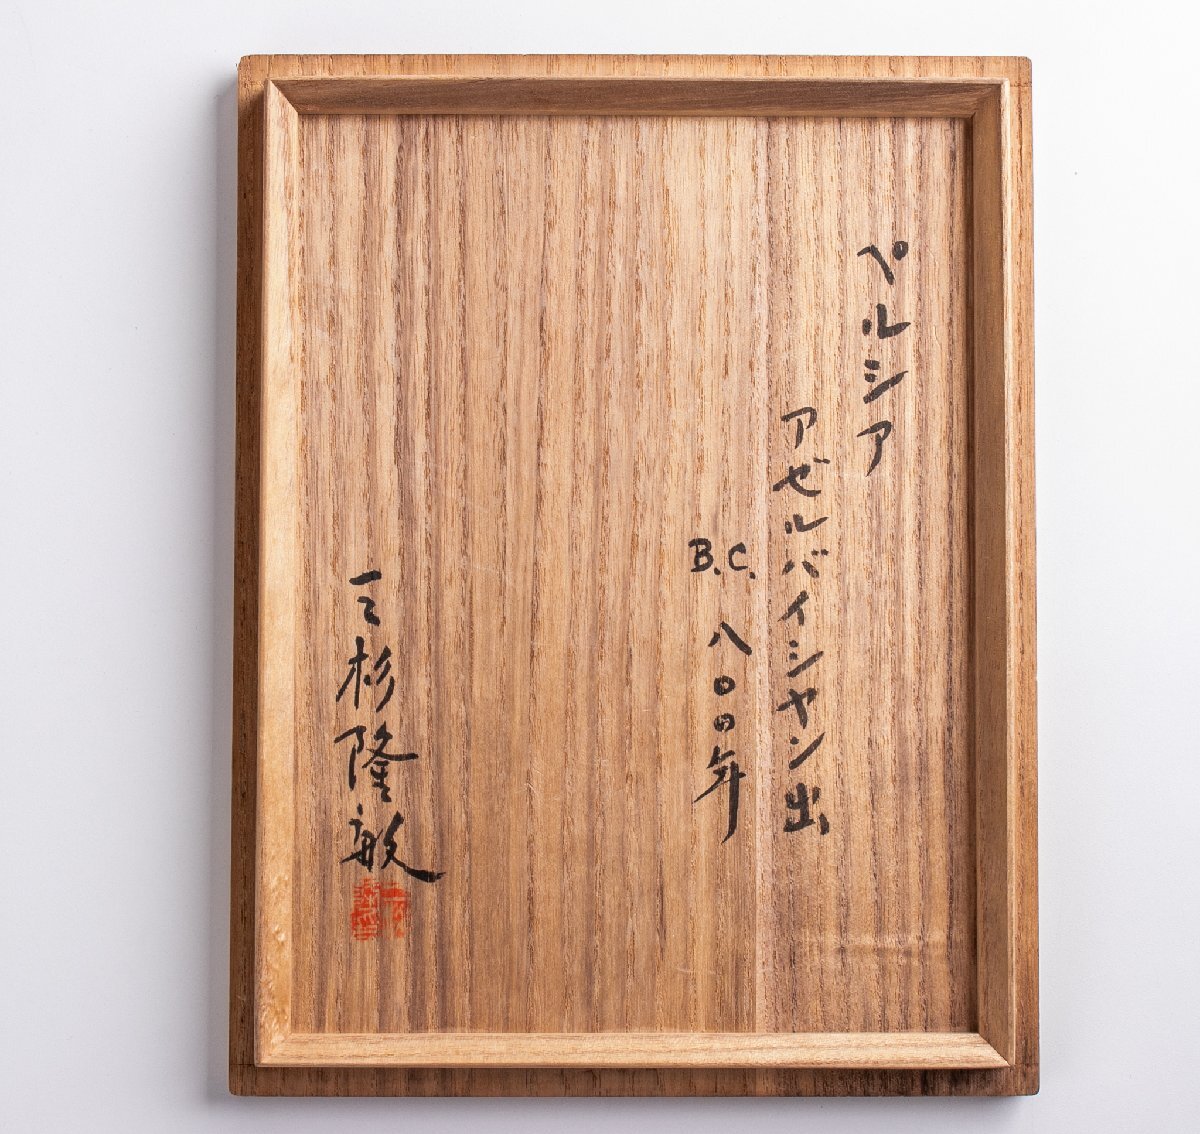 ペルシア
アゼルバイジャン出
B.C. 八〇〇年
三杉隆敏